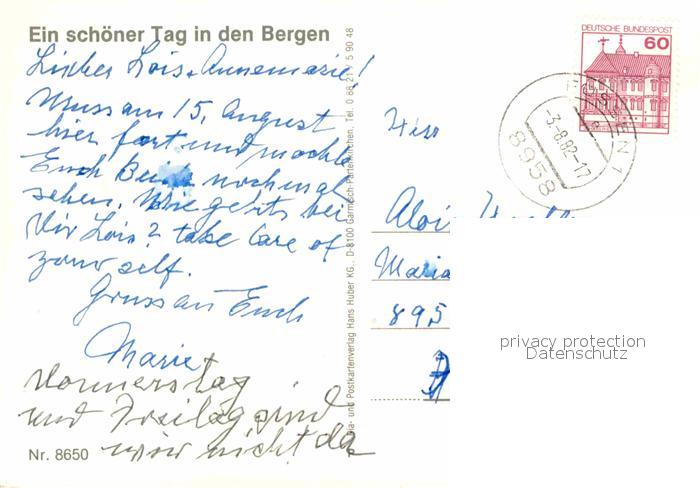 Ein schöner Tag in den Bergen
Lieber Lois + Annemarie!
Muss am 15. August
hier fort und mochte
Euch Beide nochmal
sehen. Wie gehts bei
Dir Lois? take Care of
your self.
Gruss an Euch
Marie
Donnerstag
und Freitag sind
wir nicht da
Nr. 8650
und Postkartenverlag Hans Huber KG., D-8100 Garmisch-Partenkirchen, Tel. 0 88 21 / 5 90 48
DEUTSCHE BUNDESPOST
60
-3.-8.82-17
8958
Alois
Maria
895
privacy protection
Datenschutz